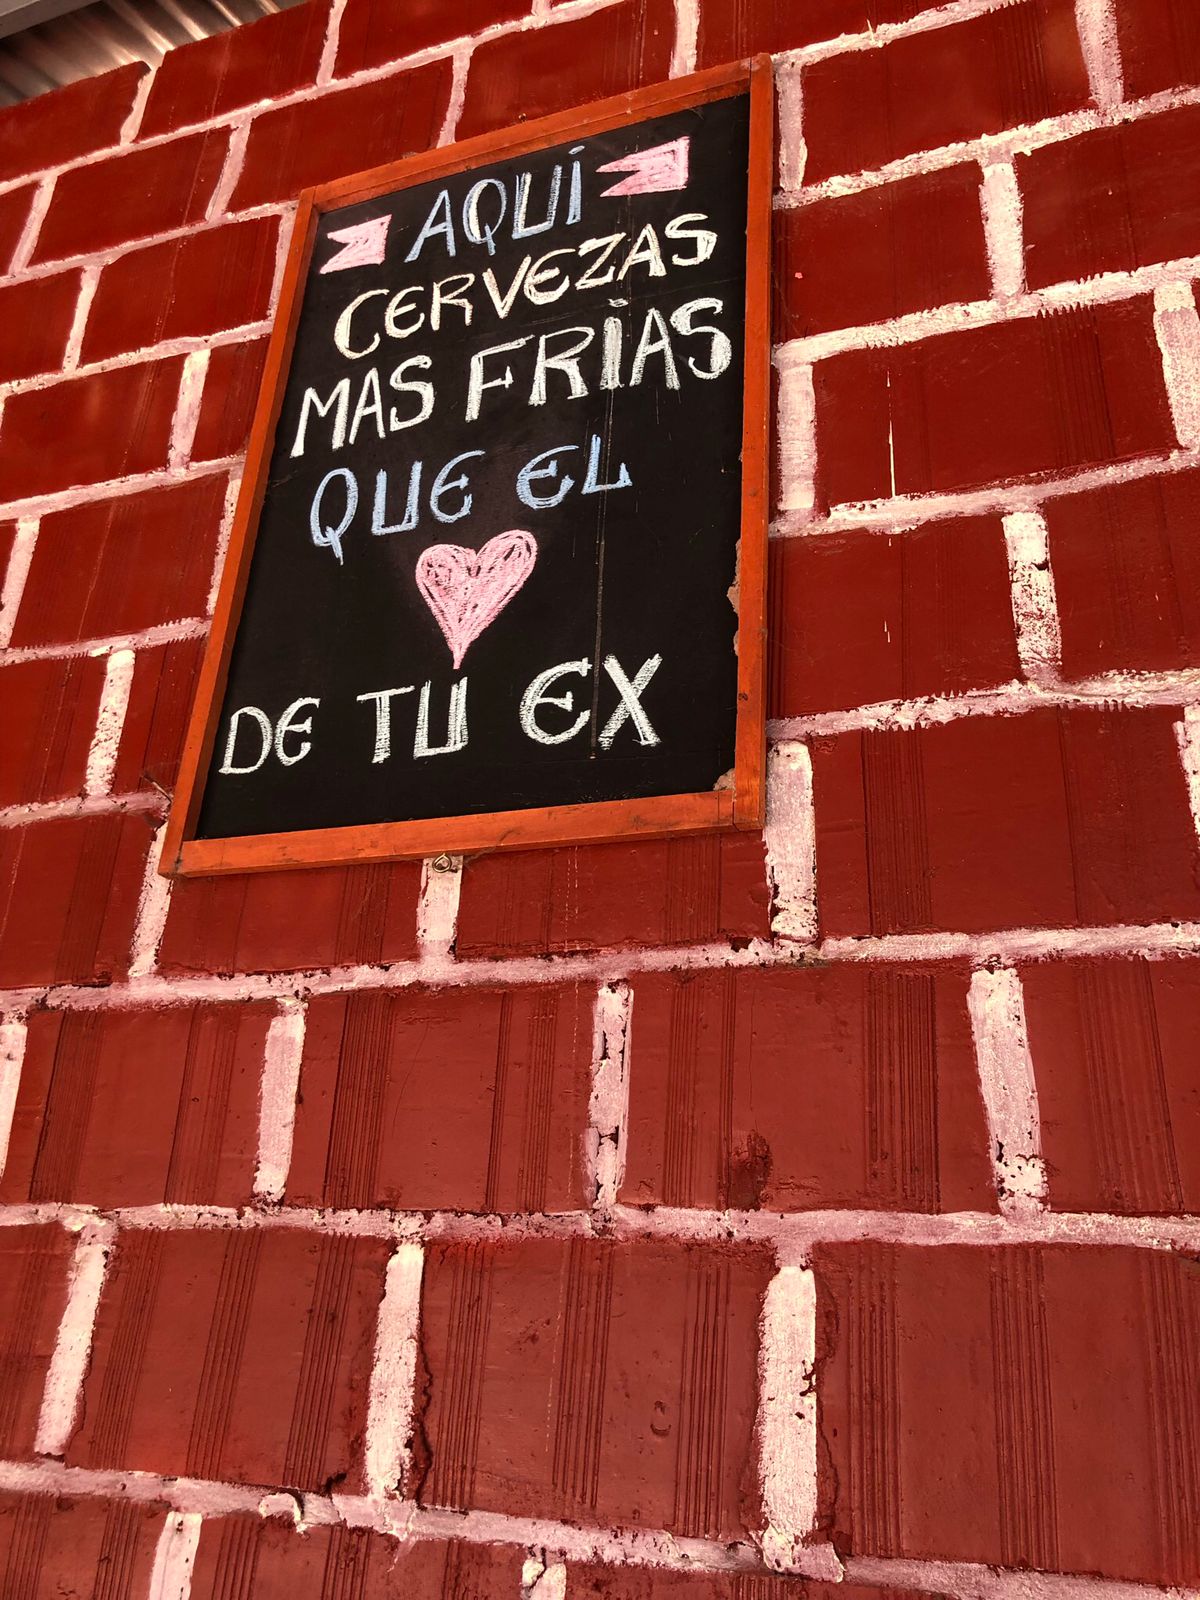 AQUÍ
CERVEZAS
MAS FRÍAS
QUE EL
DE TU EX